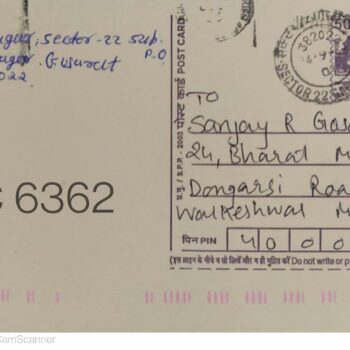 Sector-22 Sub.
P.O
Gujarat
022
C 6362
पोस्ट कार्ड POST CARD
S.P.P. - 2003
SECTOR 22
50
TO
Sanjay R Gos
24, Bharat M
Dongarsi Roa
Walkeshwar M
पिन PIN 4 0 0 0
(इस लाइन के नीचे न तो लिखें और न ही मुद्रित करें Do not write or p
CamScanner